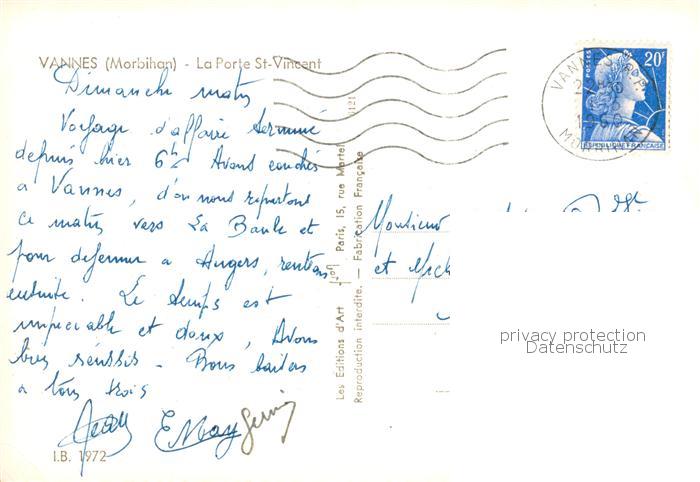 VANNES (Morbihan) - La Porte St-Vincent
Dimanche matin
Voyage d'affaire terminé
depuis hier 6h Avons couchés
a Vannes, d'ou nous repartons
ce matin vers La Baule et
pour dejeuner a Angers, rentrons
ensuite. Le temps est
impeccable et doux, Avons
bien réussis - Bons baisers
a tous trois
Jean
I.B. 1972
1121
Les Editions d'Art Yvon Paris, 15, rue Martel
Reproduction interdite. — Fabrication Française
20F
POSTES
REPUBLIQUE FRANÇAISE
VANNES R.P.
1960
MORBIHAN
Monsieur
et
privacy protection
Datenschutz